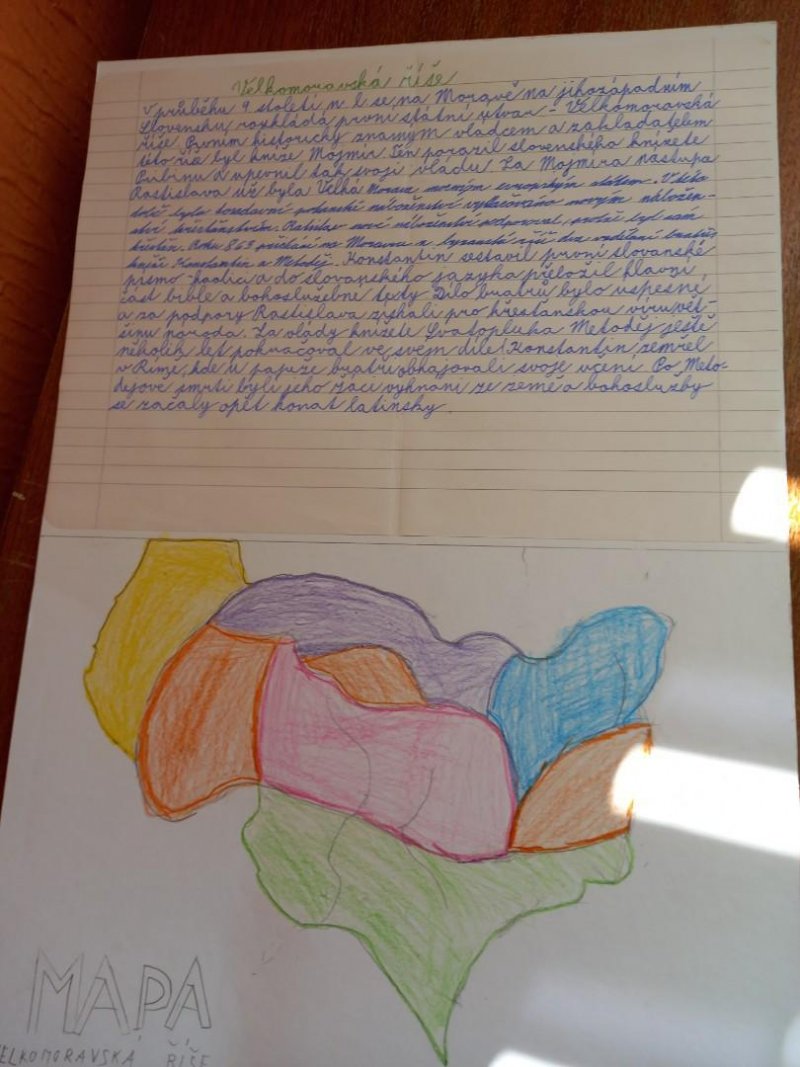 Velkomoravská říše
V průběhu 9. století n. l. se na Moravě na jihozápadním
Slovensku rozkládá první státní útvar - Velkomoravská
říše. Prvním historicky známým vládcem a zakladatelem
této říše byl kníže Mojmír. Ten porazil slovenského knížete
Pribinu a upevnil tak svoji vládu. Za Mojmíra nástupce
Rastislava už byla Velká Morava mocným evropským státem. V této
době bylo dosavadní pohanské náboženství vytlačováno novým nábožen-
stvím křesťanstvím. Rastislav nové náboženství podporoval, protože byl sám
křtěn. Roku 863 přichází na Moravu z byzantské říše dva vzdělaní bratři
kněží Konstantin a Metoděj. Konstantin sestavil první slovanské
písmo - a do slovanského jazyka přeložil hlavní
část bible a bohoslužebné texty. Dílo bratrů bylo úspěšné
a za podpory Rastislava získali pro křesťanskou víru vět-
šinu národa. Za vlády knížete Svatopluka Metoděj ještě
několik let pokračoval ve svém díle. Konstantin zemřel
v Římě, kde u papeže bratři obhajovali svoje učení. Po Meto-
dějově smrti byli jeho žáci vyhnáni ze země a bohoslužby
se začaly opět konat latinsky.
MAPA
VELKOMORAVSKÁ ŘÍŠE